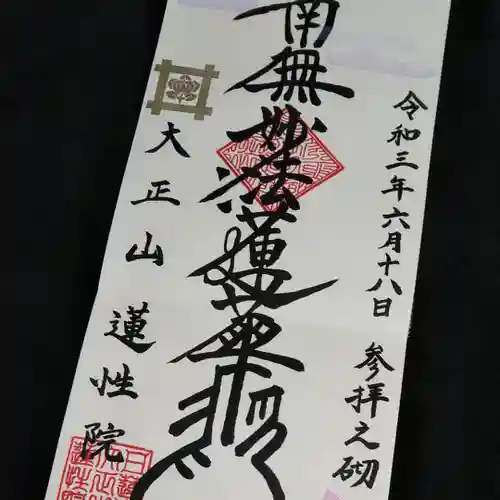 令和三年六月十八日 参拝之砌
南無妙法蓮華経
大正山 蓮性院